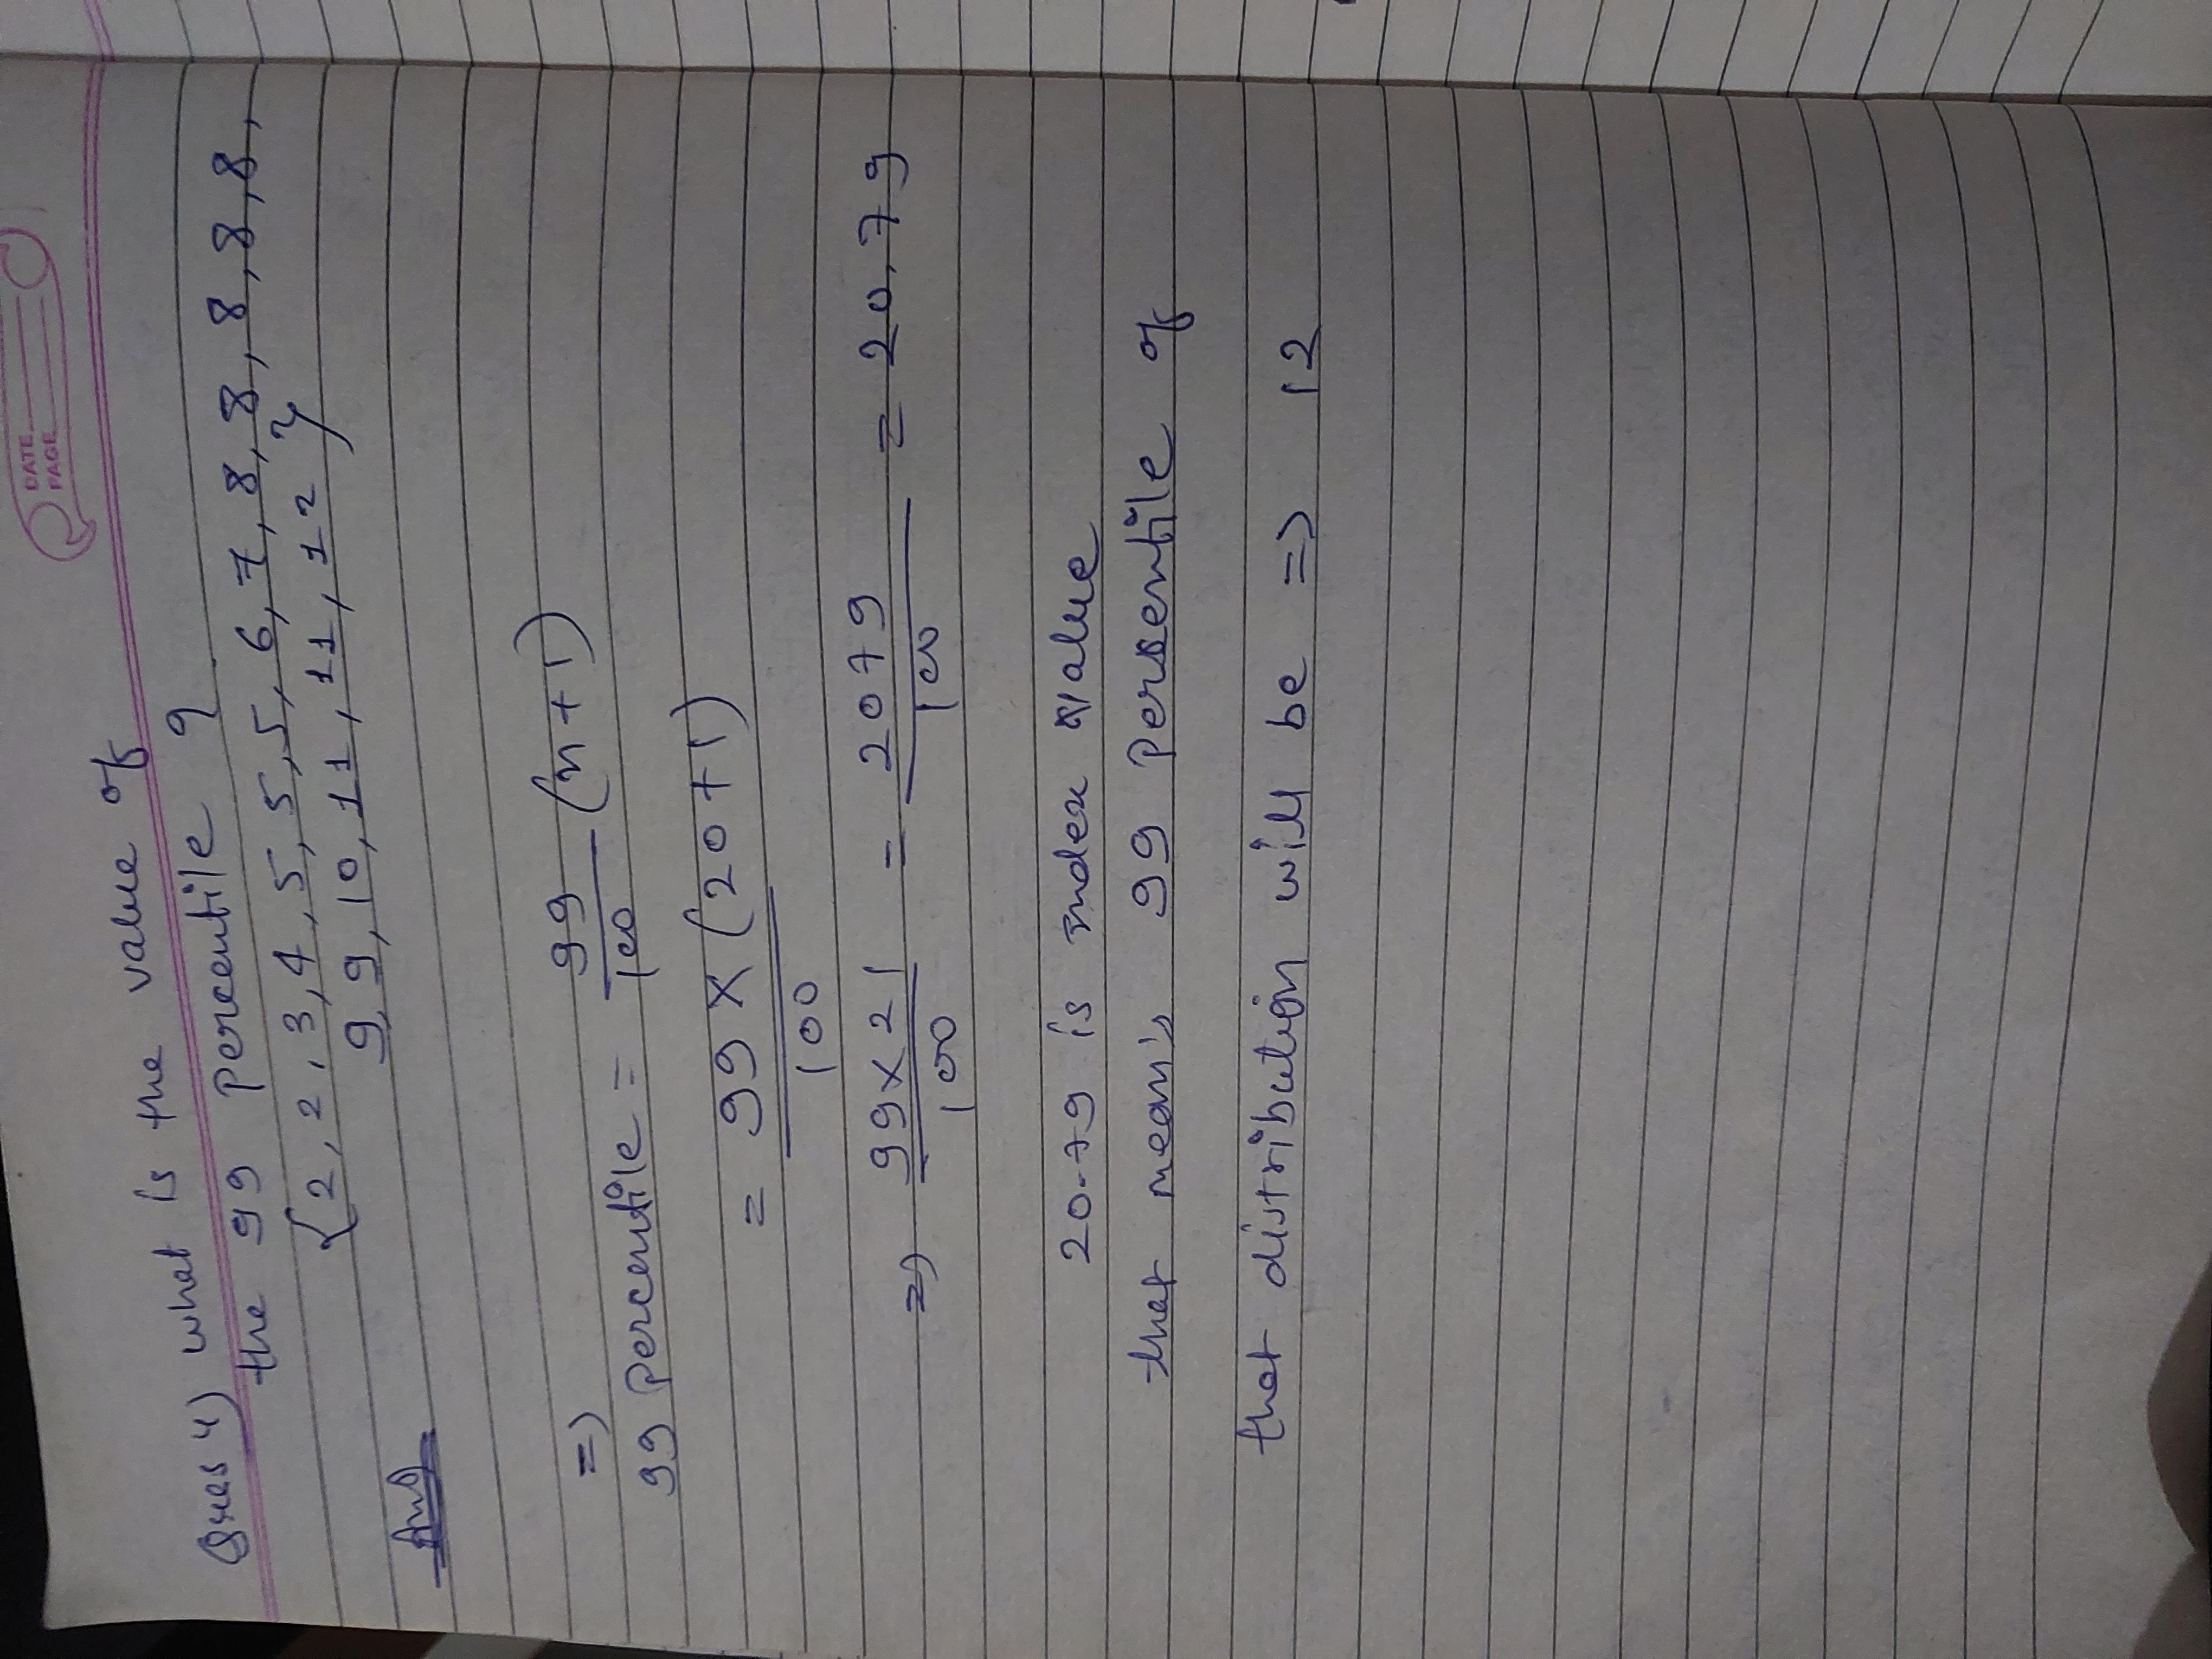 DATE
PAGE
Ques 4) what is the value of
the 99 percentile ?
{2, 2, 3, 4, 5, 5, 5, 6, 7, 8, 8, 8, 8, 8,
9, 9, 10, 11, 11, 12}
Ans
=>
99 Percentile = 99/100 (n+1)
= 99 x (20+1) / 100
=> 99x21/100 = 2079/100 = 20.79
20.79 is index value
that mean's 99 Percentile of
that distribution will be => 12